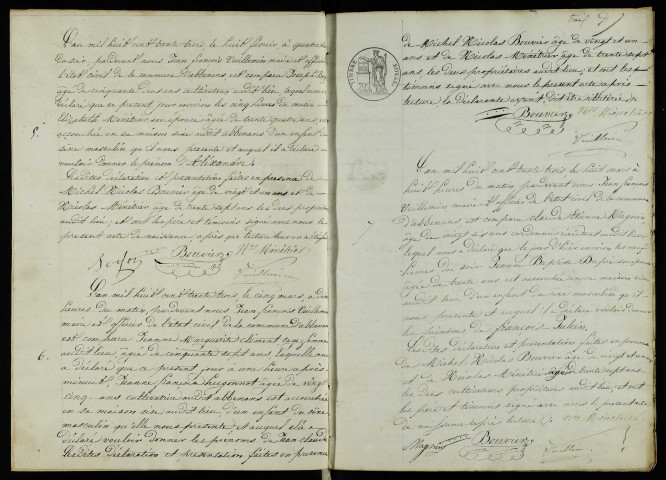 L'an mil huit cent trente trois, le huit février, à quatre h.
du soir, pardevant nous Jean François Vuillemin maire et officier
de l'état civil de la commune d'abbenans est comparu Joseph
âgé de cinquante deux ans cultivateur audit lieu, lequel nous a
déclaré que ce présent jour environ les cinq heures du matin
Elizabeth Ménétrier son épouse âgée de trente quatre ans, est
accouchée en sa maison sise audit abbenans d'un enfant du
5. sexe masculin qu'il nous présente et auquel il a déclaré
vouloir donner le prénom d'Alexandre,
Lesdites déclaration et présentation faites en présence de
Michel Nicolas Bouvier âgé de vingt et un ans et de
Nicolas Ménétrier âgé de trente sept ans les deux propriétaires
audit lieu, et ont les père et témoins signé avec nous le
présent acte de naissance, après que lecture leur en a été faite
Bouvier Nas Ménétrier
Vuillemin
L'an mil huit cent trente trois, le cinq mars, à
heures du matin pardevant nous Jean François Vuillemin
maire et officier de l'état civil de la commune d'abbenans
est comparue Jeanne Marguerite Clément
audit lieu âgée de cinquante sept ans, laquelle nous
6. a déclaré que ce présent jour à une heure après
minuit, Jeanne françoise hugonnet âgée de vingt
cinq ans cultivatrice audit abbenans est accouchée
en sa maison sise audit lieu, d'un enfant du sexe
masculin qu'elle nous présente et auquel elle a
déclaré vouloir donner les prénoms de Jean claude
Lesdites déclaration et présentation faites en présence
de Michel Nicolas Bouvier âgé de vingt et un
ans et de Nicolas Ménétrier âgé de trente sept
ans les deux propriétaires audit lieu, et ont les
témoins signé avec nous le présent acte après
lecture, la déclarante ayant dit être illitérée
TIMBRE ROYAL
Bouvier Nas Ménétrier
Vuillemin
L'an mil huit cent trente trois le huit mars à
huit heures du matin pardevant nous Jean françois
Vuillemin maire et officier de l'état civil de la commune
d'abbenans est comparu claude Etienne Magnin
âgé de vingt six ans cordonnier audit lieu
lequel nous a déclaré que le jour d'hier environ les neuf
7 heures du soir Jeanne Baptiste son épouse
âgée de trente ans est accouchée en sa maison sise
audit lieu d'un enfant du sexe masculin qu'il
nous présente et auquel il a déclaré vouloir donner
les prénoms de françois Julien.
Lesdites déclaration et présentation faites en présence
de Michel Nicolas Bouvier âgé de vingt et un ans
et de Nicolas Ménétrier âgé de trente sept ans
les deux cultivateurs propriétaires audit lieu, et ont
les père et témoins signé avec nous le présent acte
de naissance après lecture. Nas Ménétrier
Magnin Bouvier
Vuillemin